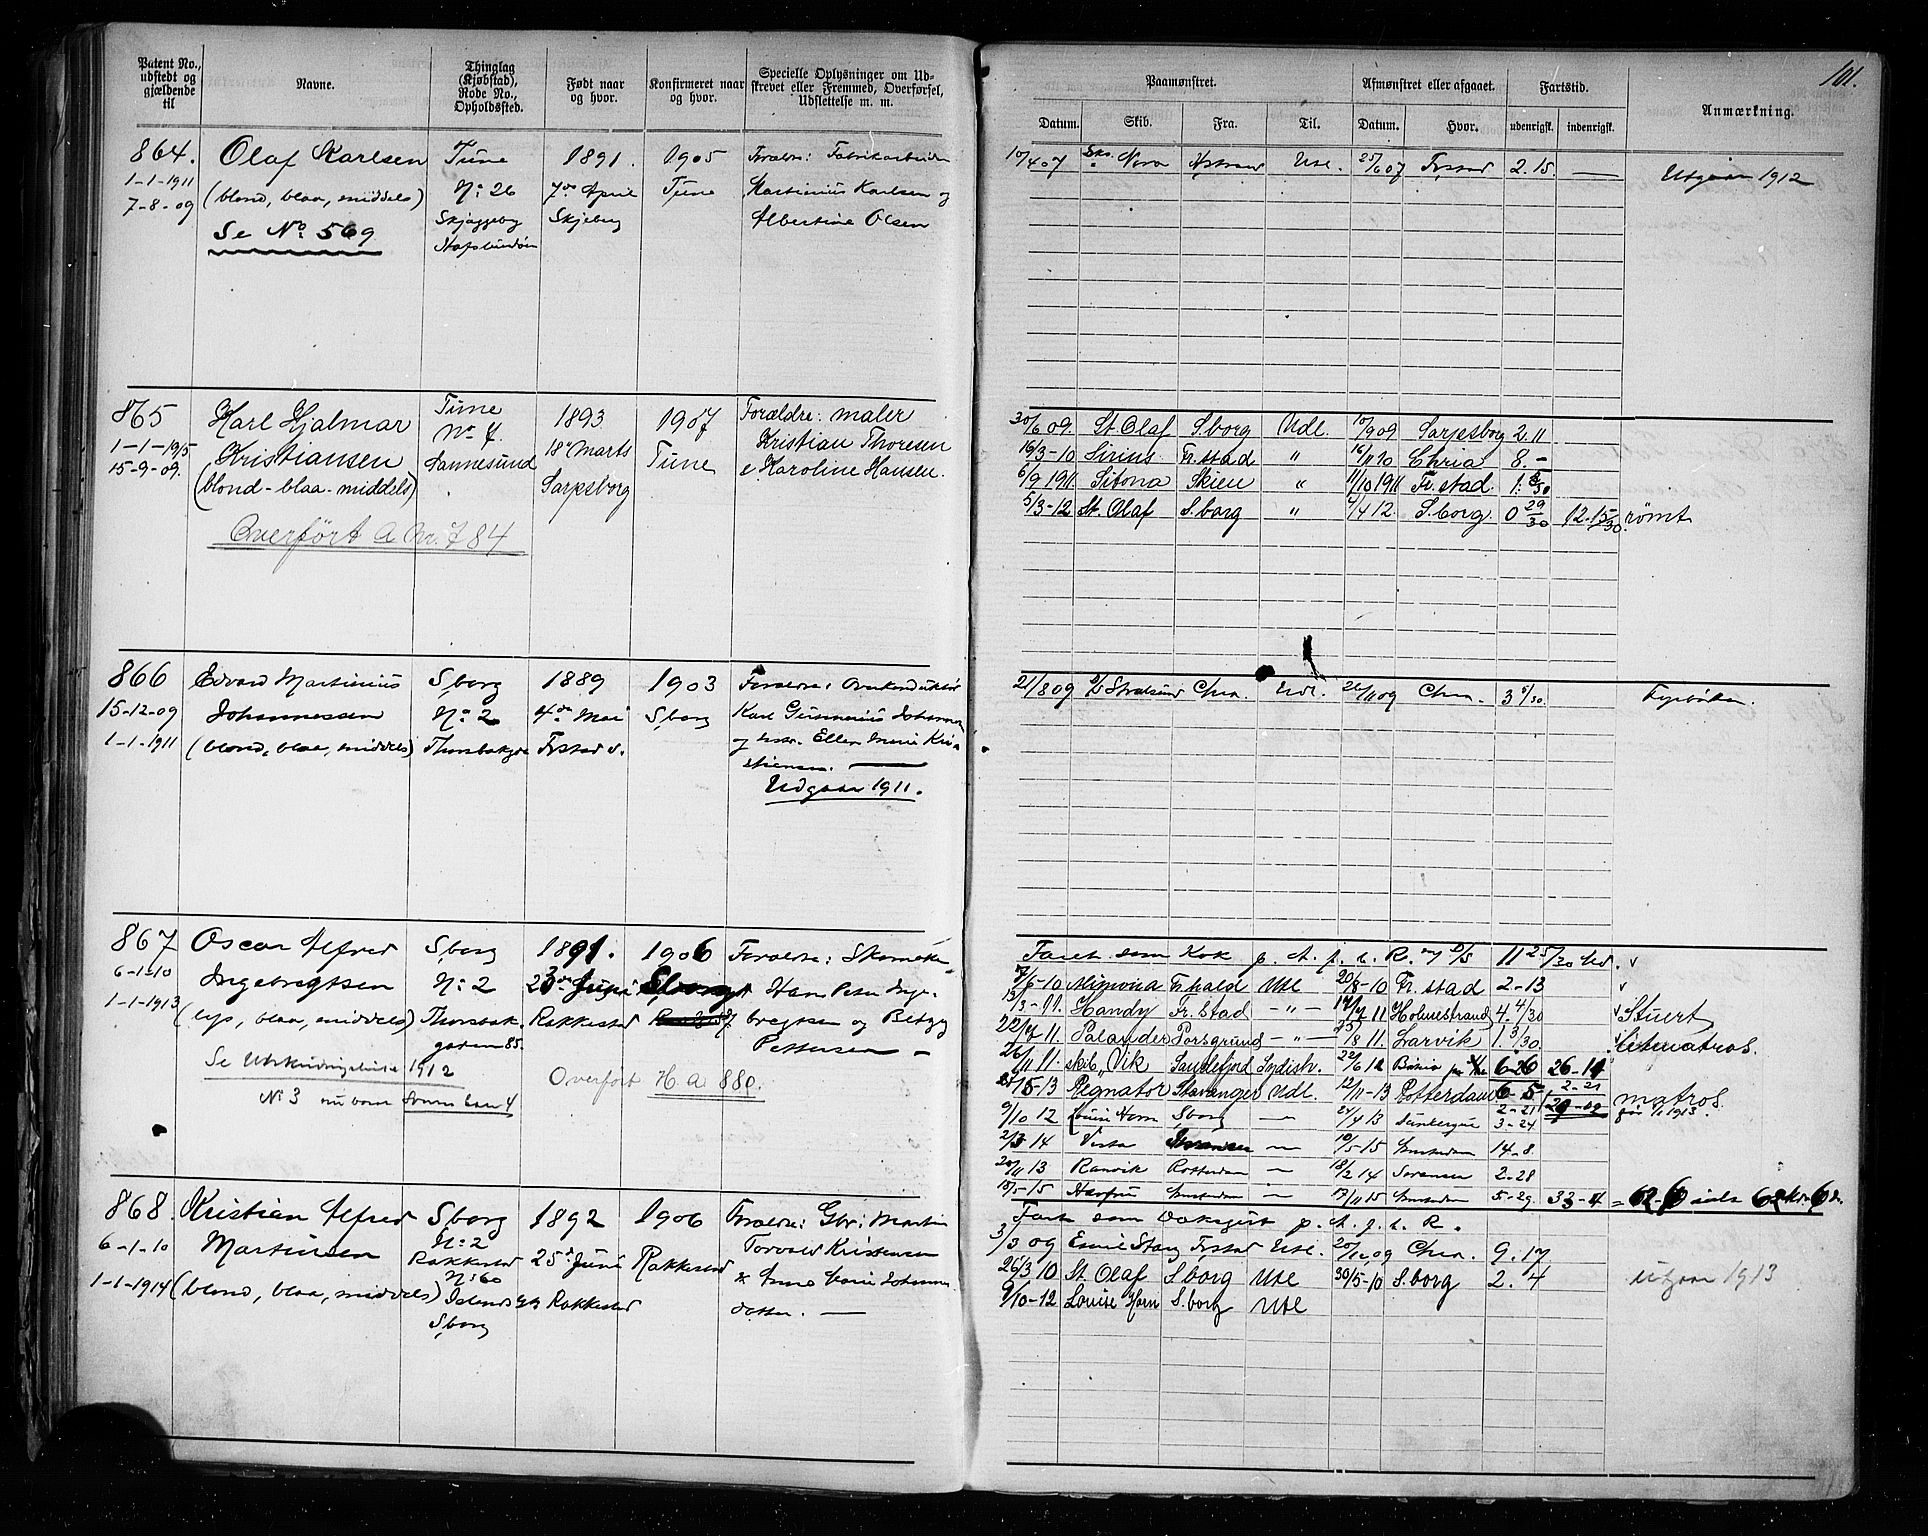 101.
Patent No., udstedt og gjældende til
Navne.
Thinglag (Kjøbstad), Rode No., Opholdssted.
Født naar og hvor.
Konfirmeret naar og hvor.
Specielle Oplysninger om Udskrevet eller Fremmed, Overførsel, Udslettelse m. m.
Paamønstret.
Afmønstret eller afgaaet.
Fartstid.
Anmærkning.
Datum. Skib. Fra. Til. Datum. Hvor. udenrigsk. indenrigsk.
864. Olaf Karlsen Tune 1891. 1905 Forældre: Fabrikarbeider
1-1-1911 (blond, blaa, middels) No: 26 7de April Tune Martinius Karlsen og
7-8-09 Se No: 569 Skjæggeby Skjeberg Albertine Olsen
Hafslundsøn
10/4 07 Nora Utl. 25/6 07 Frstad 2.15. — Utgaar 1912
865 Karl Hjalmar Tune 1893 1907 Forældre: maler
1-1-1915 Kristiansen No 7. 18de Marts Tune Kristian Thoresen
15-9-09. (blond-blaa-middels) Sannesund Sarpsborg & Karoline Hansen.
Overført A Nr. 784
30/6 09. St. Olaf S.borg Udl. 10/9 09 Sarpsborg 2.11
16/3-10 Sirius Fr.stad " 16/11 10 Chria 8.-
6/9 1911 Sitona Skien " 11/10 1911 Fr.stad. 1.
5/3-12 St. Olaf S.borg " 4/4 12. S.borg 0 29/30 12.15/30 rømt
866 Edvard Martinius S,borg 1889 1903 Forældre:
15-12-09 Johannessen No: 2 4de Mai S,borg Karl Gunnerius Johannes
1-1-1911 (blond, blaa, middels) Frstad v. og hstr. Ellen Marie Kri
stiensen. —
Udgaar 1911.
21/8 09 Stralsund Chra. Udl. 22/11 09 Chra. 3 5/30. Fyrbøter.
867 Oscar Alfred S,borg 1891. 1906 Forældre: Skomake
6-1-10 Ingebregtsen No: 2 23de Juni S,borg Hans Peter Inge-
1-1-1913 (lys, blaa, middels) Thorsbak. Rakkestad bregtsen og Betzy
gaden 85. Pettersen —
Se Utskrivningsliste 1912
No 3
Overført H a 880.
Faret som Kok p. A. f. s. R. 11 25/30 Ud.
7/6-10 Fr.hald Utl 20/8-10 Fr.stad 2-13
13/3-11. Handy Fr.stad -"- 17/7 11 Holmestrand 4.4/30 Stuert
22/7 11. Palander Porsgrund -"- 25/8 11. Larvik 1.3/30. Letmatros.
26/11 11. skib „Vik Sandefjord Sydish. 22/6 12 Bahia 6-26 26-14
Regnator Stavanger Udl. 12/11-13 Rotterdam 6-5 29-09 matros.
2-21 2-21 før 1/1 1913
9/10 12 Louise Horn S,borg — 24/4 13 3-24
2/3 14 Vesta — 10/5-15 Amsterdam 14-8
20/11 13 Ranvik Rotterdam — 18/2 14 2-28
15/5-15 Havfru Amsterdam — 17/11 15 Amsterdam 5-29. 33-4
868. Kristian Alfred S,borg 1892 1906 Forældre: Gbr: Martin
6-1-10 Martinsen No: 2 25de Juni Rakkestad Torvald Kristensen
1-1-1914 (blond, blaa, middels) Rakkestad Rakkestad & Anne Marie Johannes
No 60 datter. —
S,borg
Fart som Dæksgut p. A. f. s. R.
3/3 09 Emil Stang Frstad Utl. 20/12, 09 Chra. 9.17
26/3 10 St. Olaf S.borg Utl 30/5-10 S.borg 2. 4 Utgaar 1913
9/10-12 Louise Horn S.borg Utl